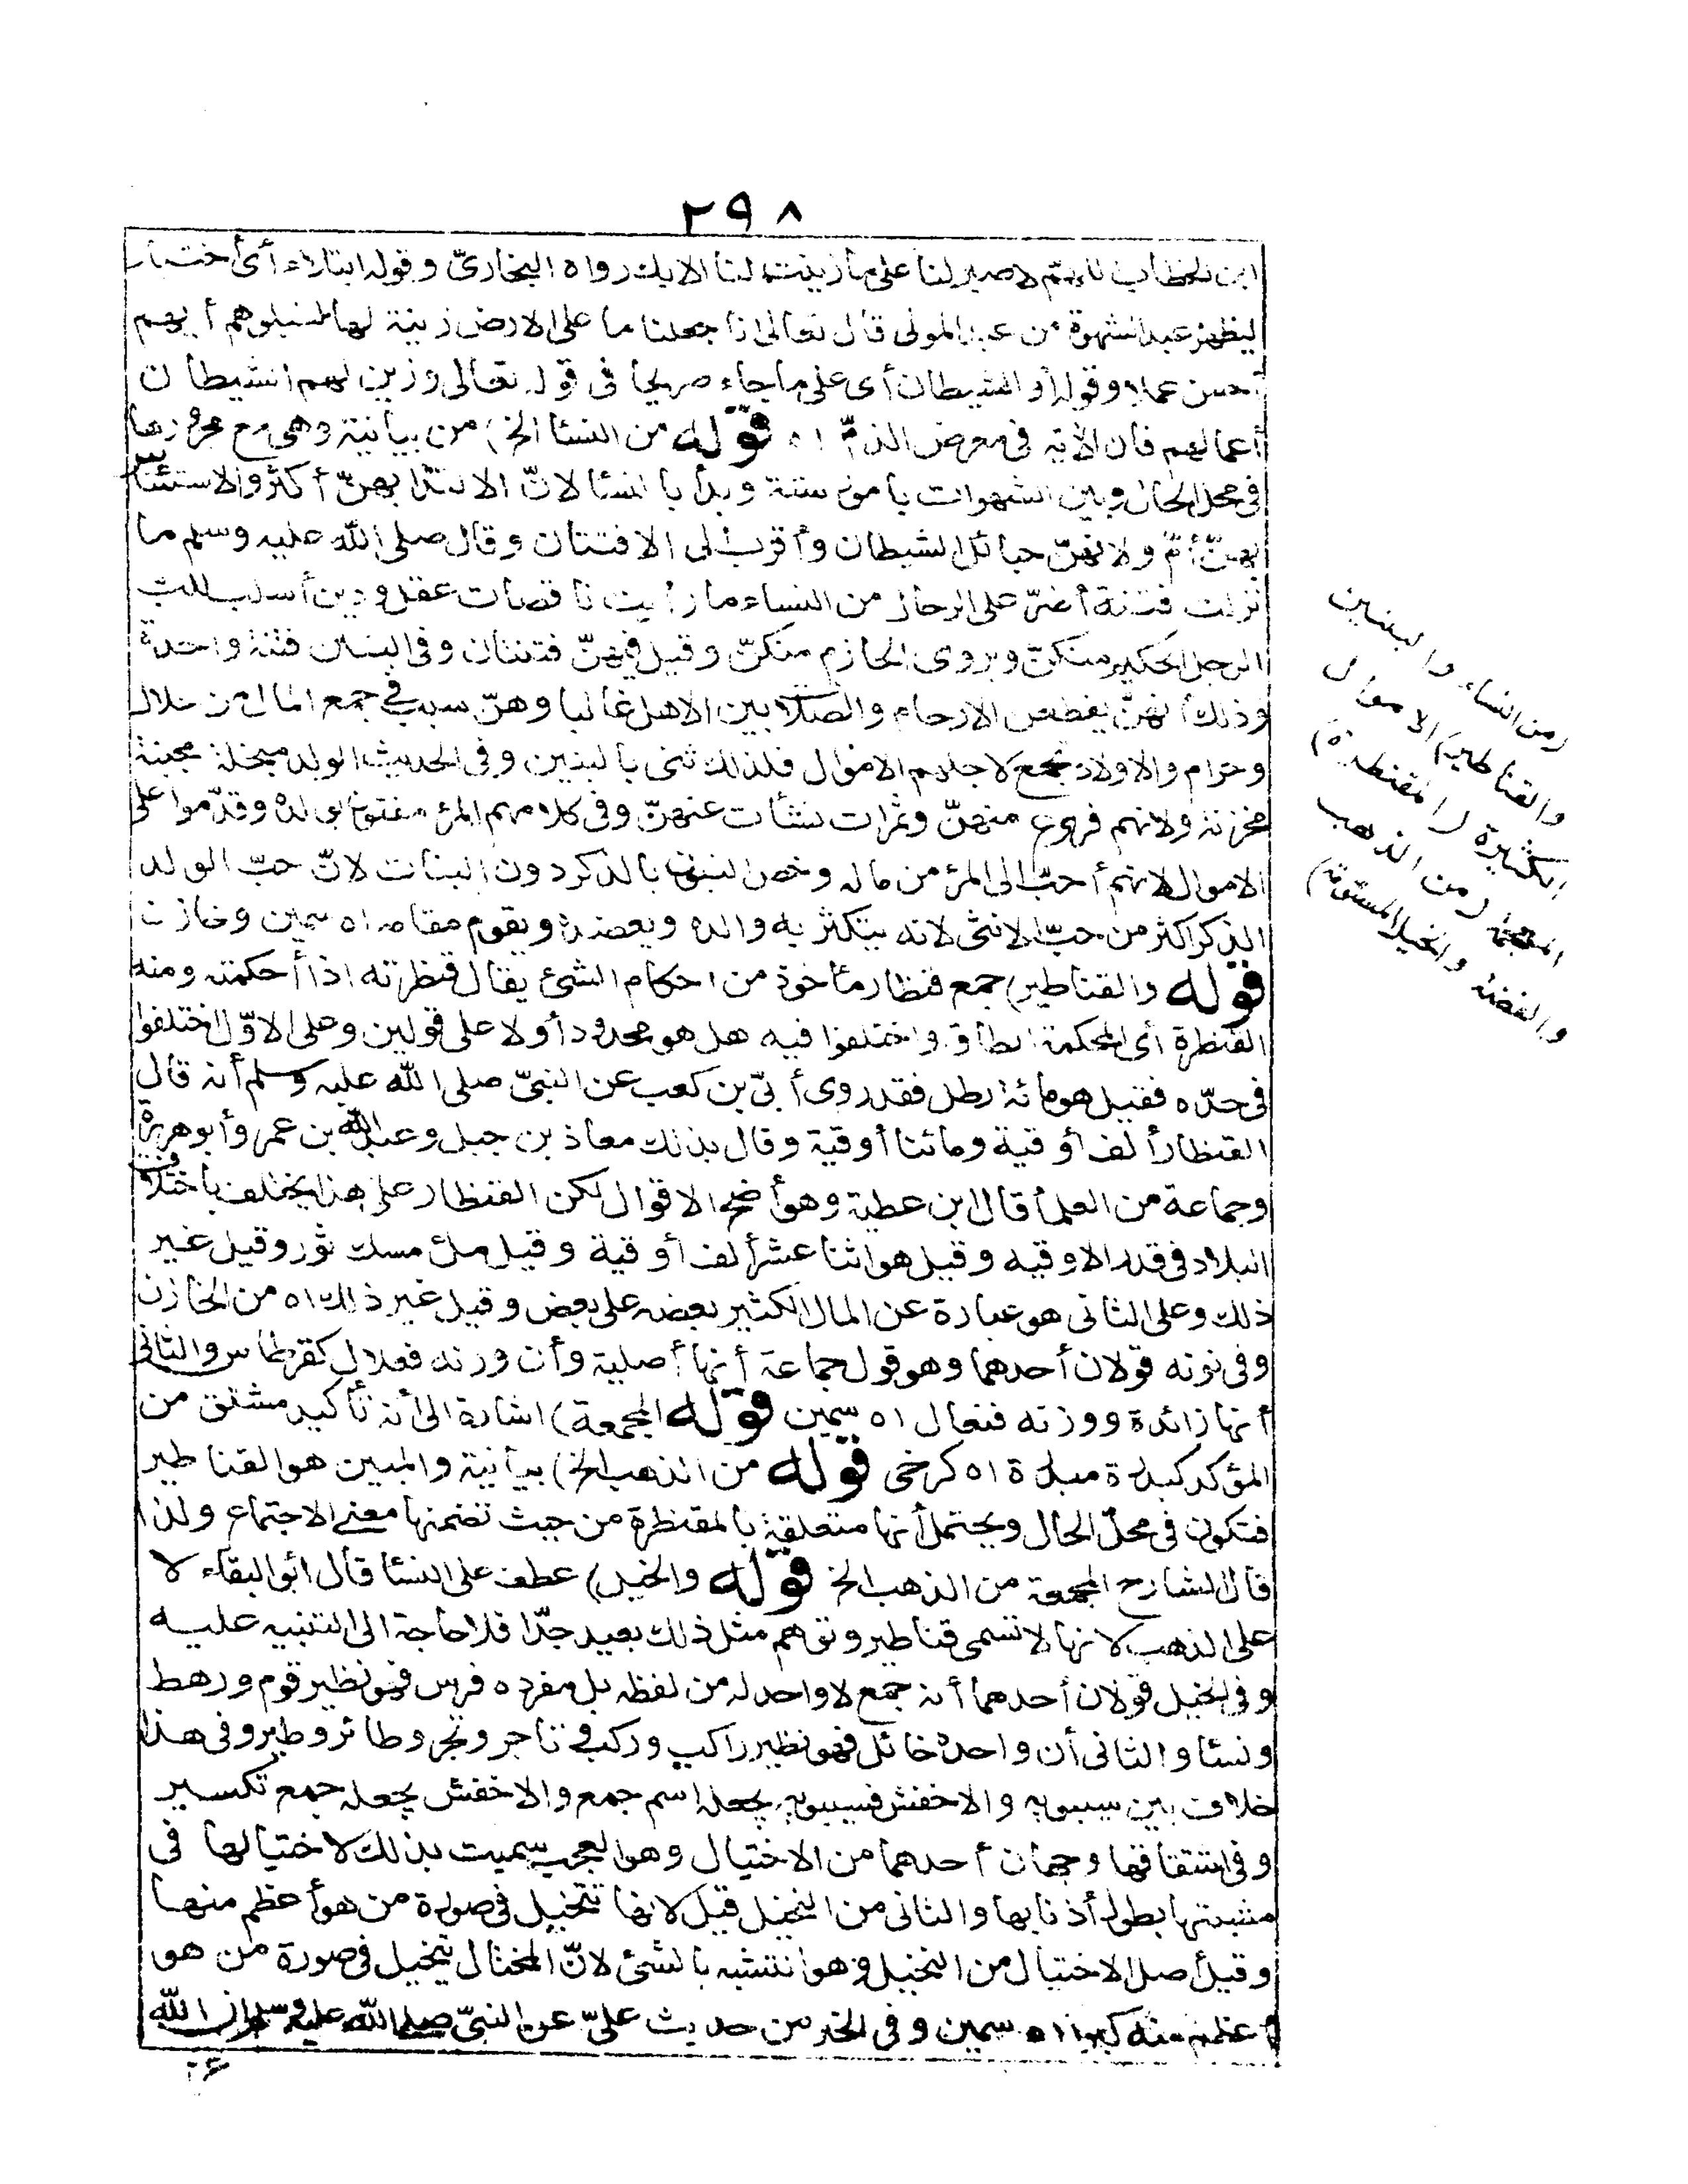 ٢٩٨
ابن الخطاب اللهم لا صبر لنا على ما زينت لنا الا بك رواه البخاريّ وقوله ابتلاء أى اختبار
ليظهر عبد الشهوة من عبد المولى قال تعالى انا جعلنا ما على الارض زينة لها لنبلوهم أيهم
أحسن عملا وقوله أو الشيطان أى على ما جاء صريحا فى قوله تعالى وزين لهم الشيطان
أعمالهم فان الآية فى معرض الذمّ اه قوله من النسا الخ) من بيانية وهى مع مجرورها
فى محل الحال وبين الشهوات بأمور ستة وبدأ بالنسا لانّ الالتذا بهنّ أكثر والاستئناس
بهنّ أتمّ ولانهنّ حبائل الشيطان وأقرب الى الافتتان وقال صلى الله عليه وسلم ما
تركت فتنة أضرّ على الرجال من النساء ما رأيت ناقصات عقل ودين أسلب للب
الرجل الحكيم منكنّ ويروى الحازم منكنّ وقيل فيهنّ فتنتان وفى البنين فتنة واحدة
وذلك أنهنّ يقطعن الارحام والصلا بين الاهل غالبا وهنّ سبب فى جمع المال من حلال
وحرام والاولاد تجمع لاجلهم الاموال فلذلك ثنى بالبنين وفى الحديث الولد مبخلة مجبنة
محزنة ولانهم فروع منهنّ وثمرات نشأت عنهنّ وفى كلامهم المرء مفتون بولده وقدّموا على
الاموال لانهم أحبّ الى المرء من ماله وخص البنون بالذكر دون البنات لانّ حبّ الولد
الذكر اكثر من حبّ الانثى لانه يتكثر به والده ويعضده ويقوم مقامه اه سمين وخازن
قوله والقناطير) جمع قنطار مأخوذ من احكام الشئ يقال قنطرته اذا أحكمته ومنه
القنطرة أى المحكمة الطاق واختلفوا فيه هل هو محدود أولا على قولين وعلى الاوّل اختلفوا
فى حدّه فقيل هو مائة رطل فقد روى أبىّ بن كعب عن النبىّ صلى الله عليه وسلم أنه قال
القنطار ألف أوقية ومائتا أوقية وقال بذلك معاذ بن جبل وعبد الله بن عمر وأبو هريرة
وجماعة من العلما قال ابن عطية وهو أصح الاقوال لكن القنطار على هذا يختلف باختلاف
البلاد فى قدر الاوقيه وقيل هو اثنا عشر ألف أوقية وقيل ملئ مسك ثور وقيل غير
ذلك وعلى الثانى هو عبارة عن المال الكثير بعضه على بعض وقيل غير ذلك اه من الخازن
وفى نونه قولان أحدهما وهو قول جماعة أنها أصلية وأن وزنه فعلال كقرطاس والثانى
أنها زائدة ووزنه فنعال اه سمين قوله المجمعة) اشارة الى أنه تأكيد مشتق من
المؤكد كبدرة مبدرة اه كرخى قوله من الذهب الخ) بيانية والمبين هو القناطير
فتكون فى محلّ الحال ويحتمل أنها متعلقة بالمقنطرة من حيث تضمنها معنى الاجتماع ولذا
قال الشارح المجمعة من الذهب الخ قوله والخيل) عطف على النسا قال أبو البقاء لا
على الذهب لانها لا تسمى قناطير وتوهم مثل ذلك بعيد جدّا فلا حاجة الى التنبيه عليه
وفى الخيل قولان أحدهما أنه جمع لا واحد له من لفظه بل مفرده فرس فهو نظير قوم ورهط
ونسا والثانى أن واحده خائل فهو نظير راكب وركب فى تاجر وتجر وطائر وطير وفى هذا
خلاف بين سيبويه والاخفش فسيبويه يجعله اسم جمع والاخفش يجعله جمع تكسير
وفى اشتقاقها وجهان أحدهما من الاختيال وهو العجب سميت بذلك لاختيالها فى
مشيتها بطول أذنابها والثانى من التخيل قيل لانها تتخيل فى صورة من هو أعظم منها
وقيل أصل الاختيال من التخيل وهو التشبه بالشئ لانّ المختال يتخيل فى صورة من هو
أعظم منه كبرا اه سمين وفى الخبر من حديث علىّ عن النبىّ صلى الله عليه وسلم ان الله
(من النساء والبنين
والقناطير) الاموال
الكثيرة (المقنطرة)
المجمعة (من الذهب
والفضة والخيل المسومة)